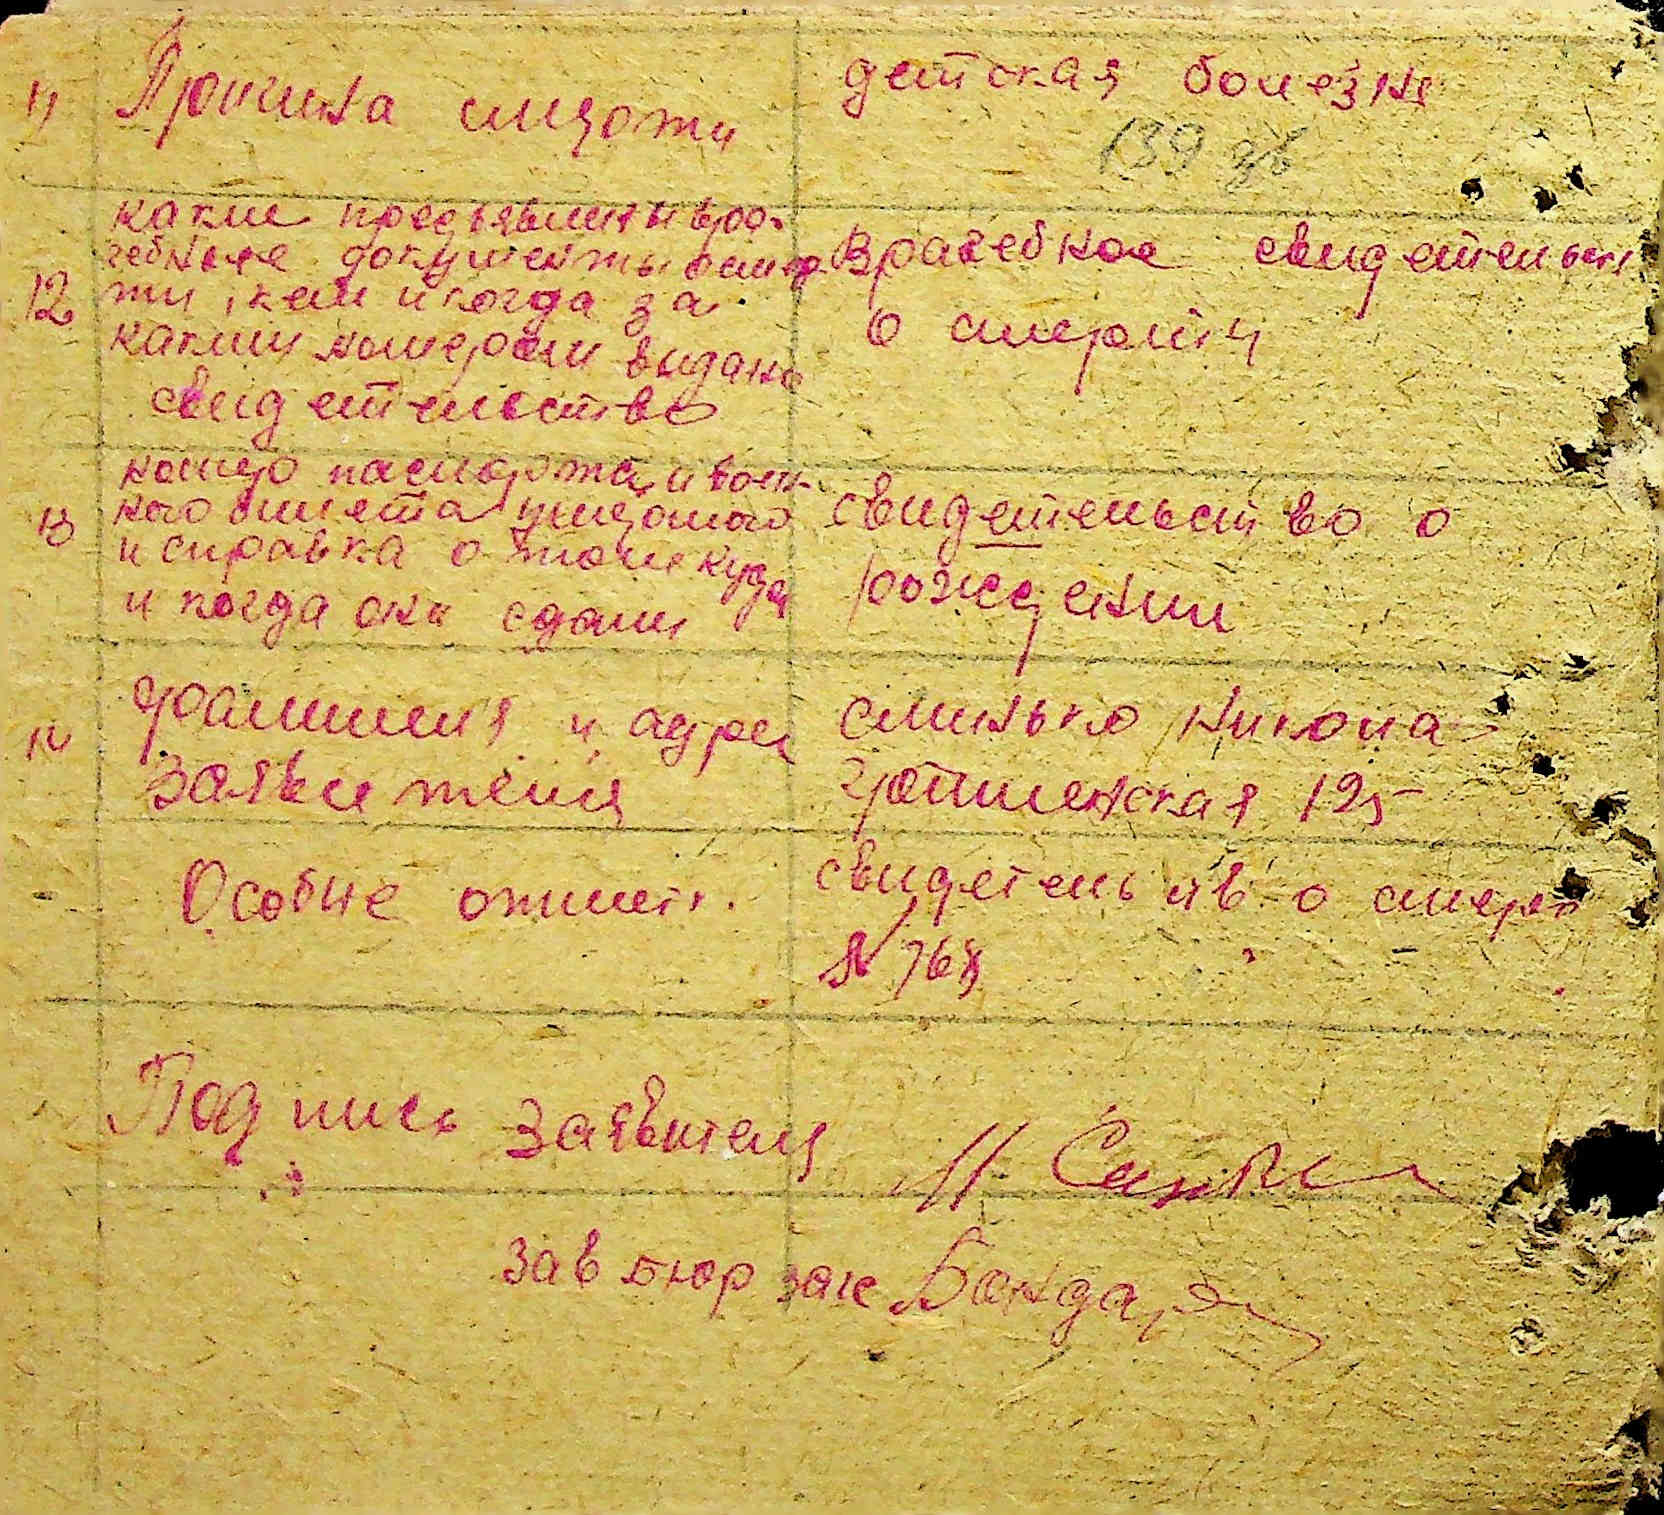 11 Причина смерти
детская болезнь
139 зв
12 какие предъявлены вра-
чебные документы о смер
ти, кем и когда за
каким номером видано
свидетельство
Врачебное свидетельств
о смерти
13 номер паспорта и воен-
ного билета умершого
и справка о том куда
и когда они сдани
свидетельство о
рождении
14 фамилия и адрес
заявителя
Синько Никола
125
Особие отмет.
свидетельств о смерт
№ 768
Подпись заявителя
Зав бюр загс Бондар